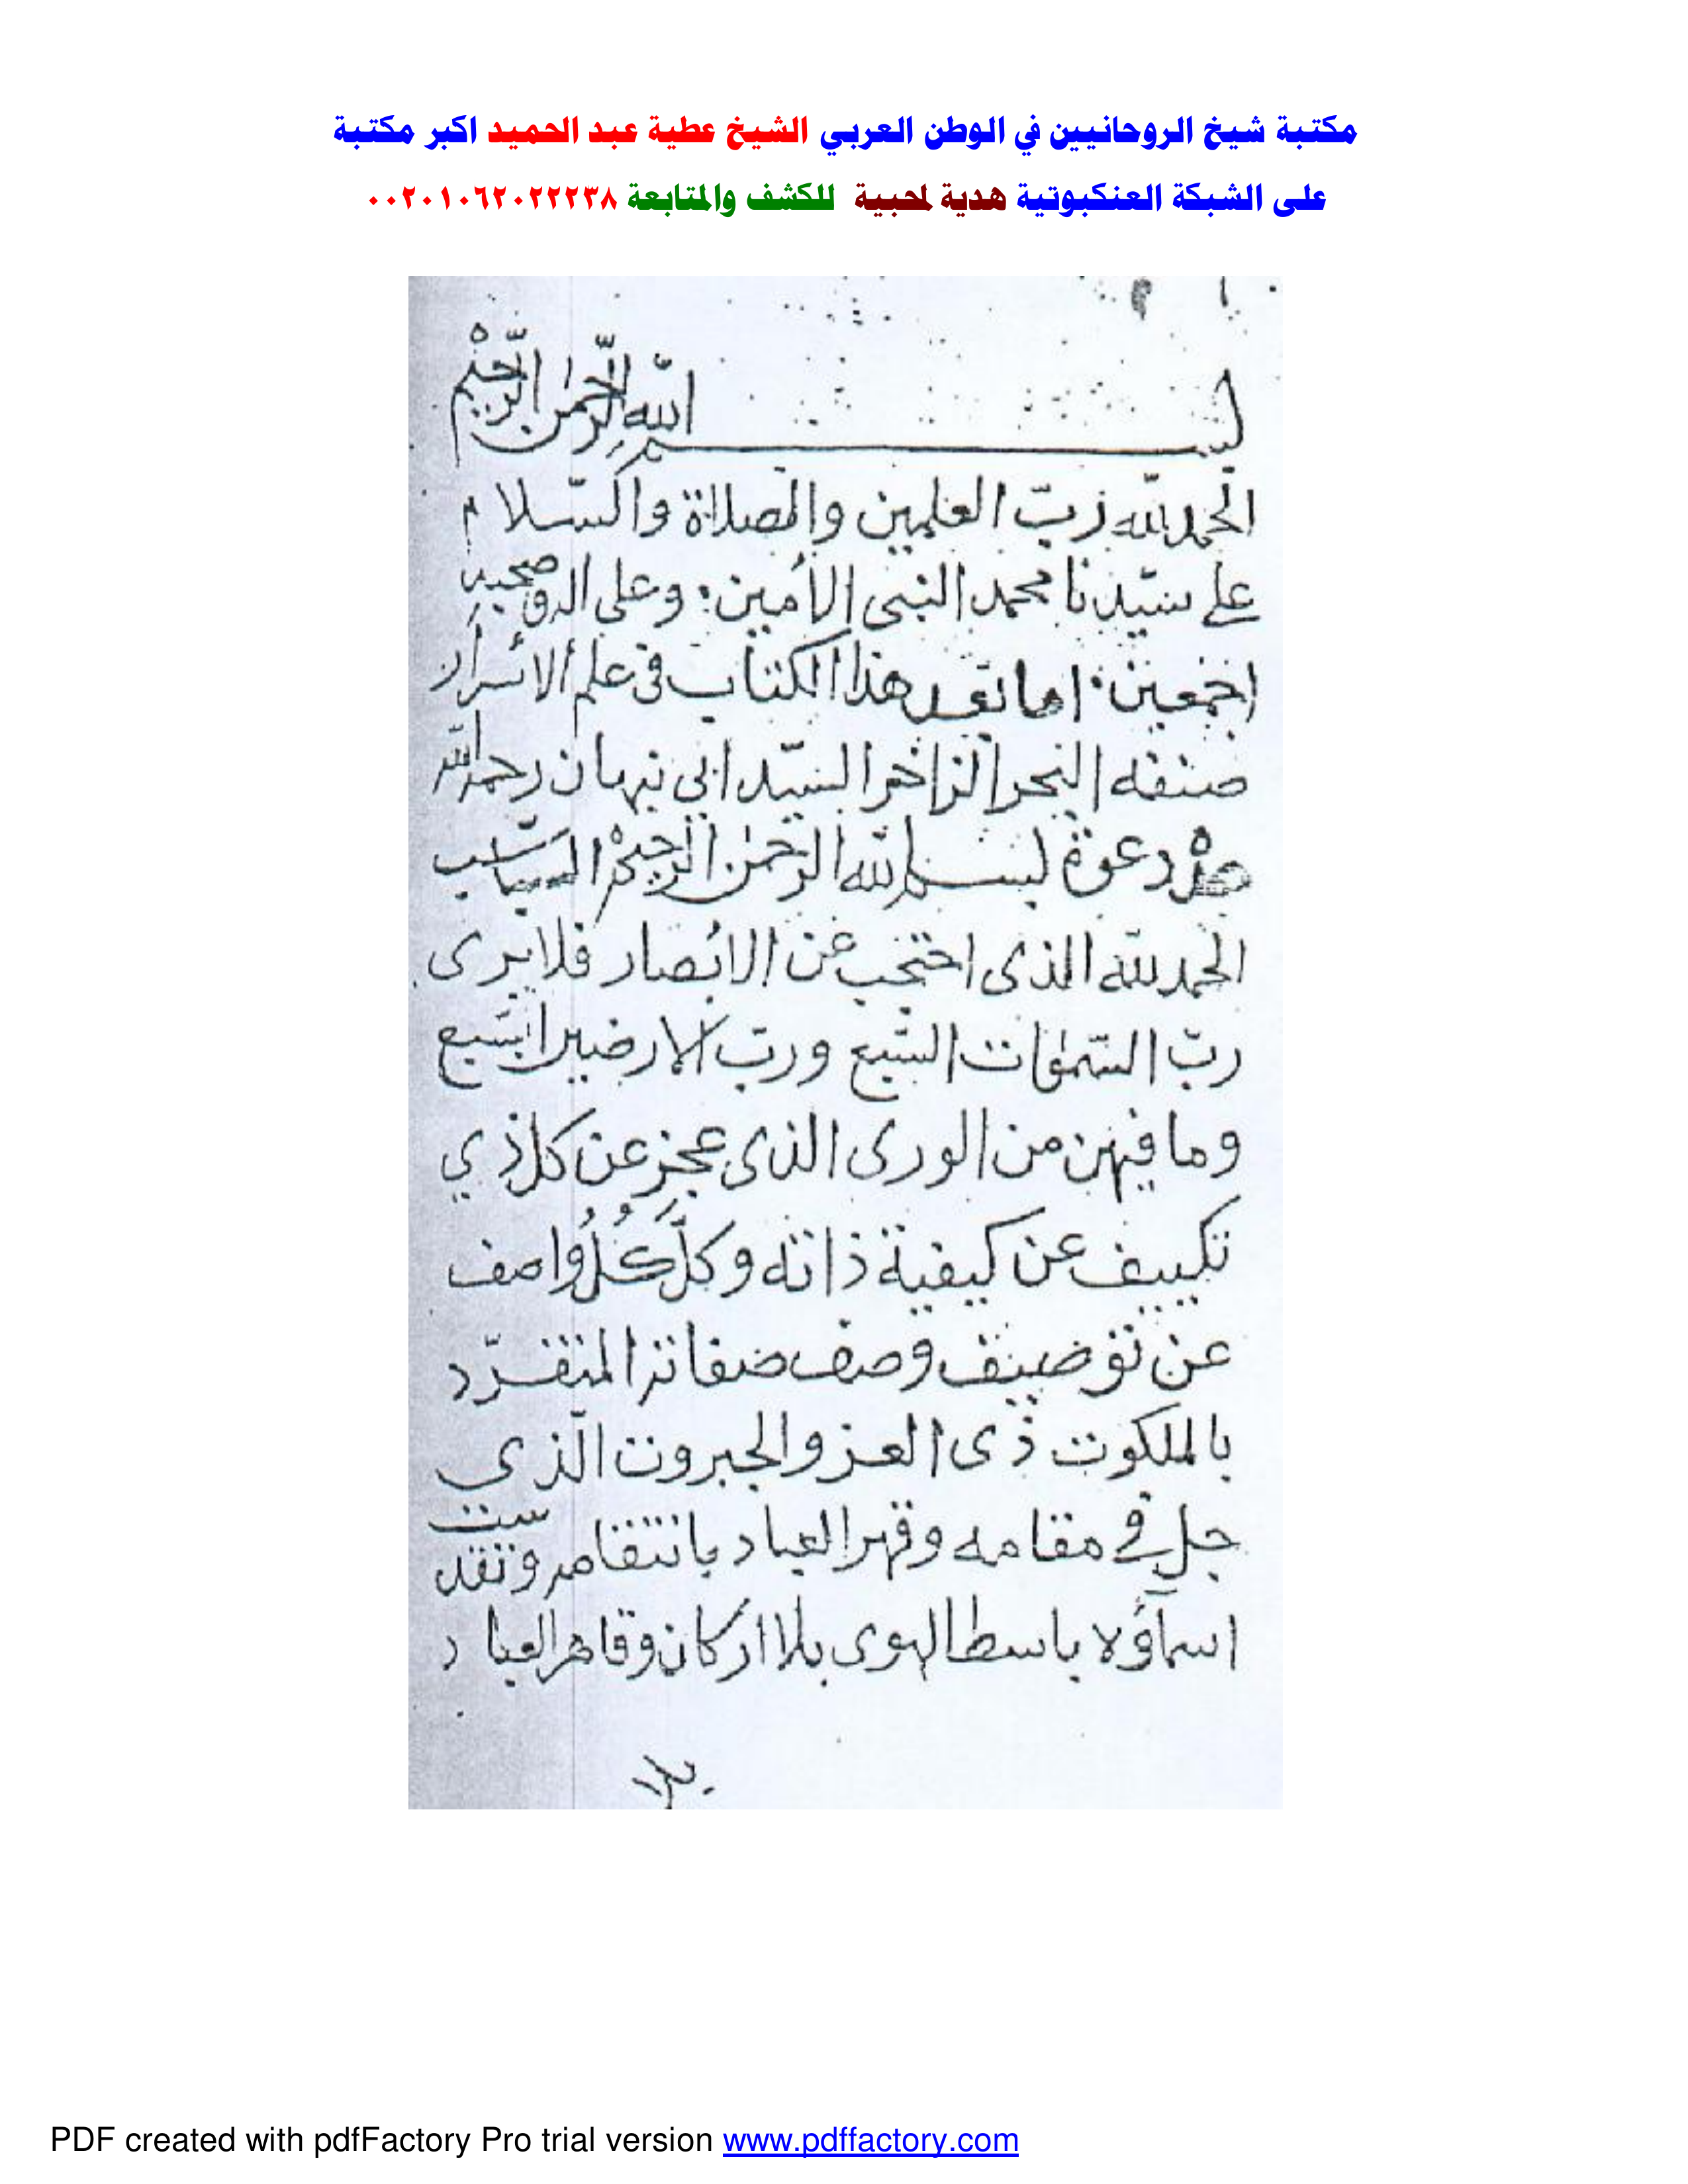 مكتبة شيخ الروحانيين في الوطن العربي الشيخ عطية عبد الحميد اكبر مكتبة
على الشبكة العنكبوتية هدية لمحبية للكشف والمتابعة ٠٠٢٠١٠٦٢٠٢٢٢٣٨
بسم الله الرحمٰن الرحيم
الحمد لله ربّ العلمين والصلاة والسّلام
على سيّدنا محمد النبى الأمين وعلى اله وصحبه
اجمعين اما بعد هذا الكتاب فى علم الاسرار
صنفه البحر الزاخر السيّد ابى نبهان رحمه الله
دعوة بسم الله الرحمٰن الرحيم
الحمد لله الذى احتجب عن الابصار فلا يرى
ربّ السّمٰوات السّبع وربّ الارضين السّبع
وما فيهن من الورى الذى عجز عن كل ذي
تكييف عن كيفية ذاته وكلَّ كُلُ واصف
عن توصيف وصف صفاته المتفرّد
بالملكوت ذى العز والجبروت الّذي
جل فى مقامه وقهر العباد بانتقامه وتقدست
اسمآؤه باسط الهوى بلا اركان وقاهر العباد
بلا
PDF created with pdfFactory Pro trial version www.pdffactory.com